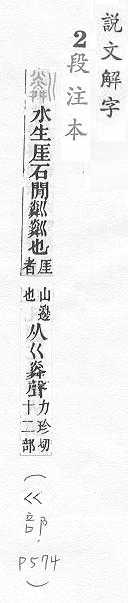 説文解字
2段注本
水生厓石閒粼粼也厓者山邊也从巜粦聲力珍切十二部
(巜部. P574)